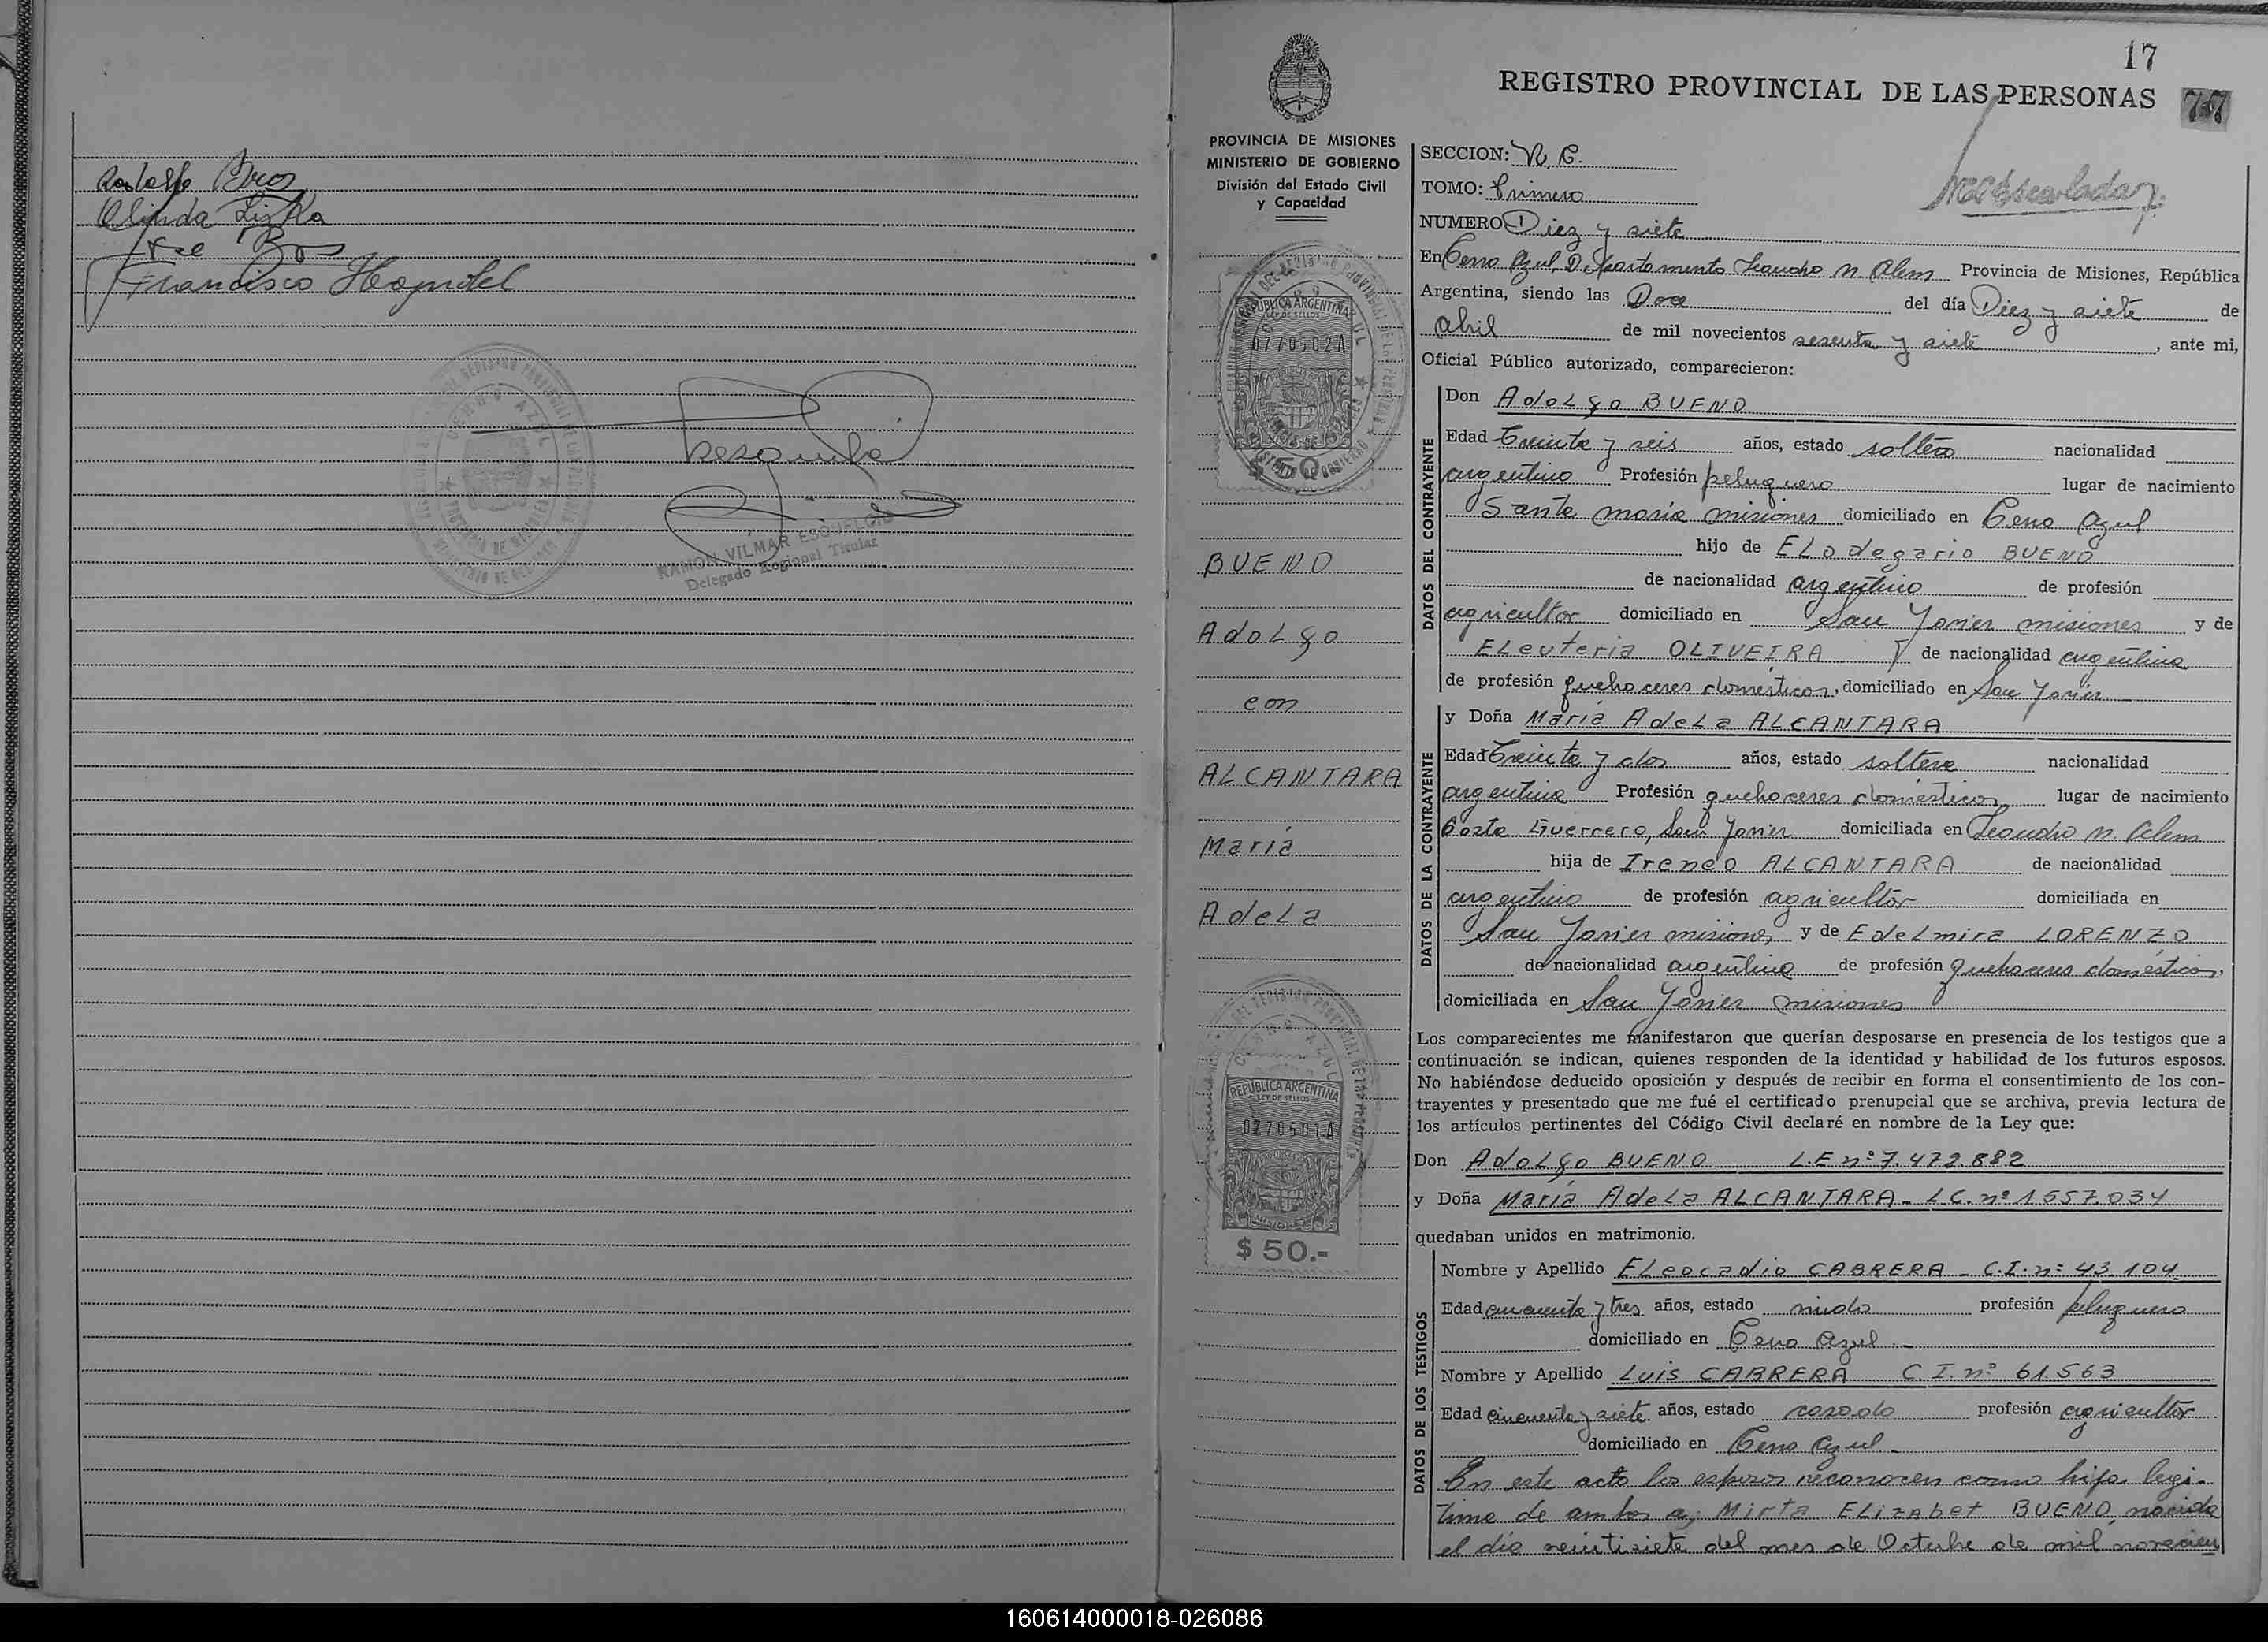 Rodolfo Bros
Olinda Lizka
Francisco Hognitel
CERRO AZUL
RAMON VILMAR ESCHELCIO
Delegado Regional Titular
17
REGISTRO PROVINCIAL DE LAS PERSONAS
77
PROVINCIA DE MISIONES
MINISTERIO DE GOBIERNO
División del Estado Civil
y Capacidad
REPUBLICA ARGENTINA
LEY DE SELLOS
0770502A
$ 50.-
BUENO
Adolfo
con
ALCANTARA
María
Adela
REPUBLICA ARGENTINA
LEY DE SELLOS
0770501A
$ 50.-
SECCION: R. C.
TOMO: Primero
NUMERO Diez y siete
En Cerro Azul, Departamento Leandro N. Alem Provincia de Misiones, República
Argentina, siendo las Doce del día Diez y siete de
abril de mil novecientos sesenta y siete, ante mi,
Oficial Público autorizado, comparecieron:
DATOS DEL CONTRAYENTE
Don Adolfo BUENO
Edad Treinta y seis años, estado soltero nacionalidad
argentino Profesión peluquero lugar de nacimiento
Santa maria misiones domiciliado en Cerro Azul
hijo de ELodegario BUENO
de nacionalidad argentino de profesión
agricultor domiciliado en San Javier misiones y de
ELeuteria OLIVEIRA de nacionalidad argentina
de profesión quehaceres domésticos, domiciliado en San Javier
DATOS DE LA CONTRAYENTE
y Doña María Adela ALCANTARA
Edad Treinta y dos años, estado soltera nacionalidad
argentina Profesión quehaceres domésticos lugar de nacimiento
Costa Guerrero, San Javier domiciliada en Leandro N. Alem
hija de Ireneo ALCANTARA de nacionalidad
argentino de profesión agricultor domiciliada en
San Javier misiones y de Edelmira LORENZO
de nacionalidad argentina de profesión quehaceres domésticos,
domiciliada en San Javier misiones
Los comparecientes me manifestaron que querían desposarse en presencia de los testigos que a
continuación se indican, quienes responden de la identidad y habilidad de los futuros esposos.
No habiéndose deducido oposición y después de recibir en forma el consentimiento de los con-
trayentes y presentado que me fué el certificado prenupcial que se archiva, previa lectura de
los artículos pertinentes del Código Civil declaré en nombre de la Ley que:
Don Adolfo BUENO L.E nº 7.472.882
y Doña María Adela ALCANTARA - L.C. nº 1.557.034
quedaban unidos en matrimonio.
DATOS DE LOS TESTIGOS
Nombre y Apellido ELeocadio CABRERA - C.I. nº 43.104
Edad cincuenta y tres años, estado viudo profesión peluquero
domiciliado en Cerro Azul.-
Nombre y Apellido Luis CABRERA C.I. nº 61.563
Edad cincuenta y siete años, estado casado profesión agricultor
domiciliado en Cerro Azul -
En este acto los esposos reconocen como hija legi-
tima de ambos a; Mirta ELizabet BUENO, nacida
el día veintisiete del mes de Octubre de mil novecien
160614000018-026086